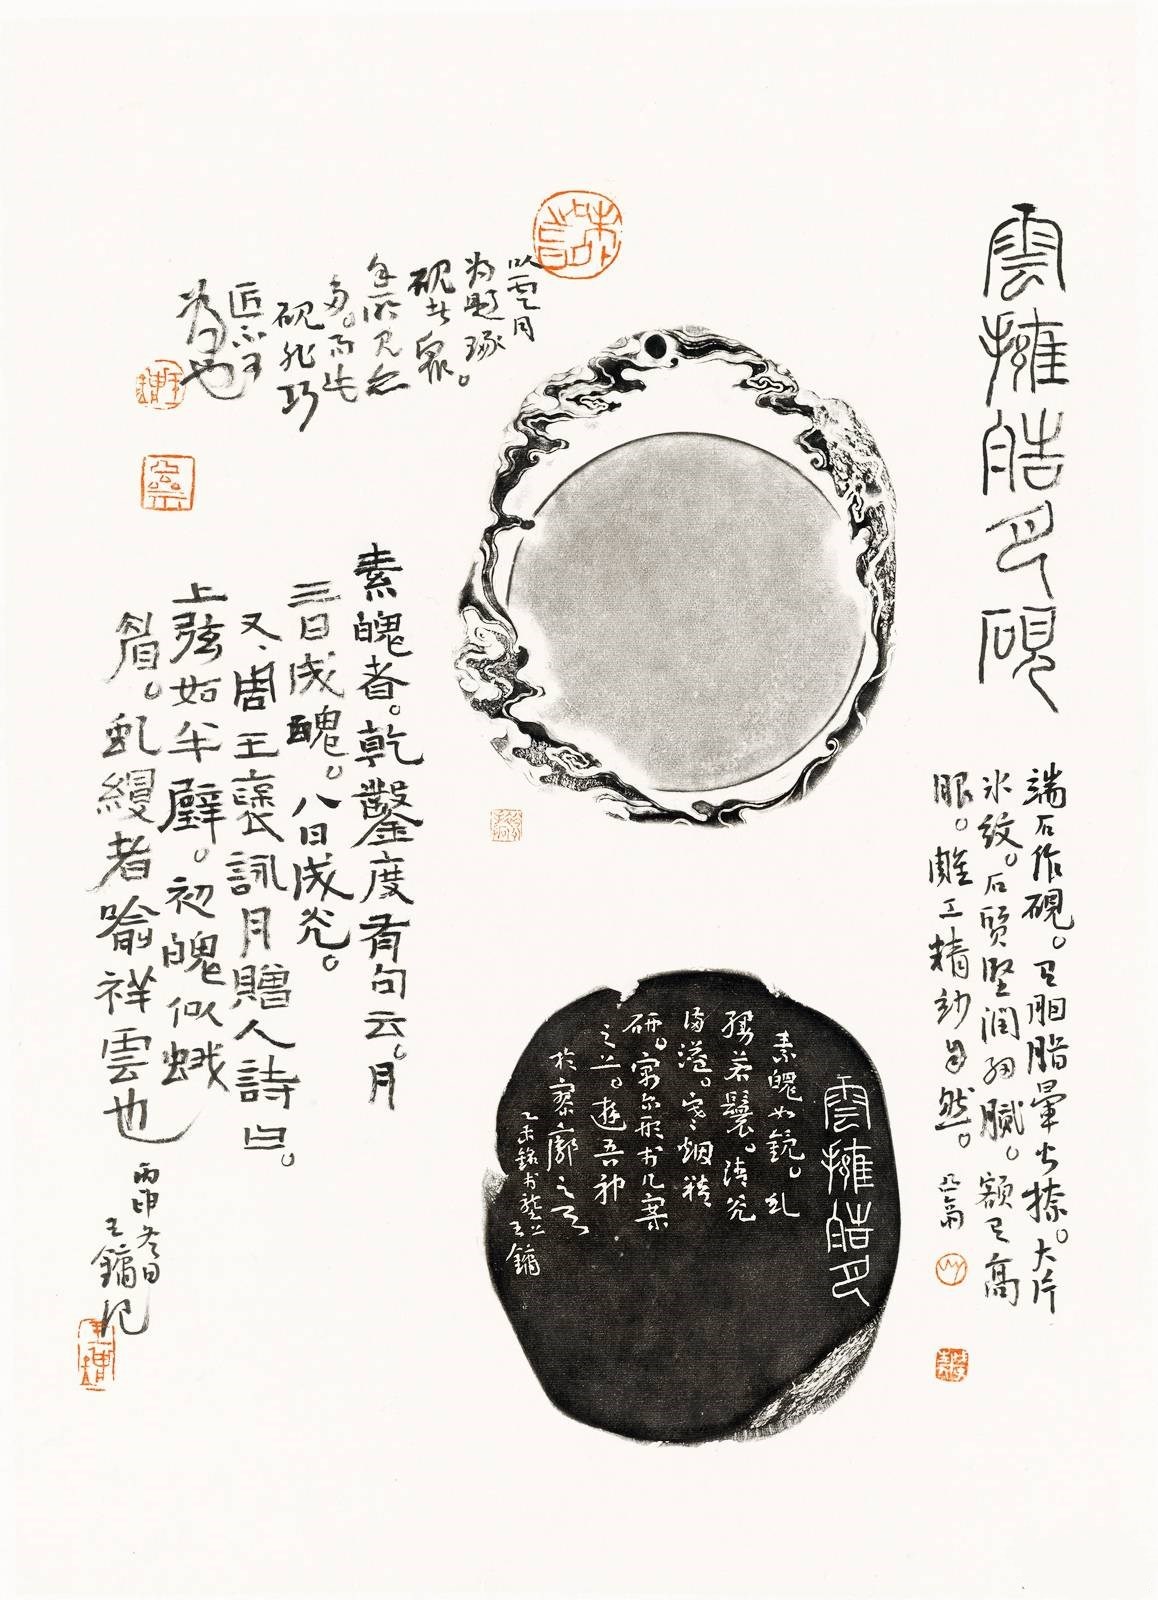 雲擁皓月硯
端石作硯。有胭脂暈火捺。大片
冰紋。石質堅潤細膩。額有高
眼。雕工精妙自然。
以雲月
為題琢。
硯者衆。
余所見亦
多。而此
硯非巧
匠不可
為也
素魄者。乾鑿度有句云。月
三日成魄。八日成光。
又、周王褒詠月贈人詩曰。
上弦如半璧。初魄似蛾
眉。虬縵者喻祥雲也
丙申冬日
王鏞記
雲擁皓月
素魄如鏡。虬
縵若鬟。清光
滿溢。
研。寓尔形於几案
之上。遊吾神
於寥廓之天
乙未銘於 王鏞